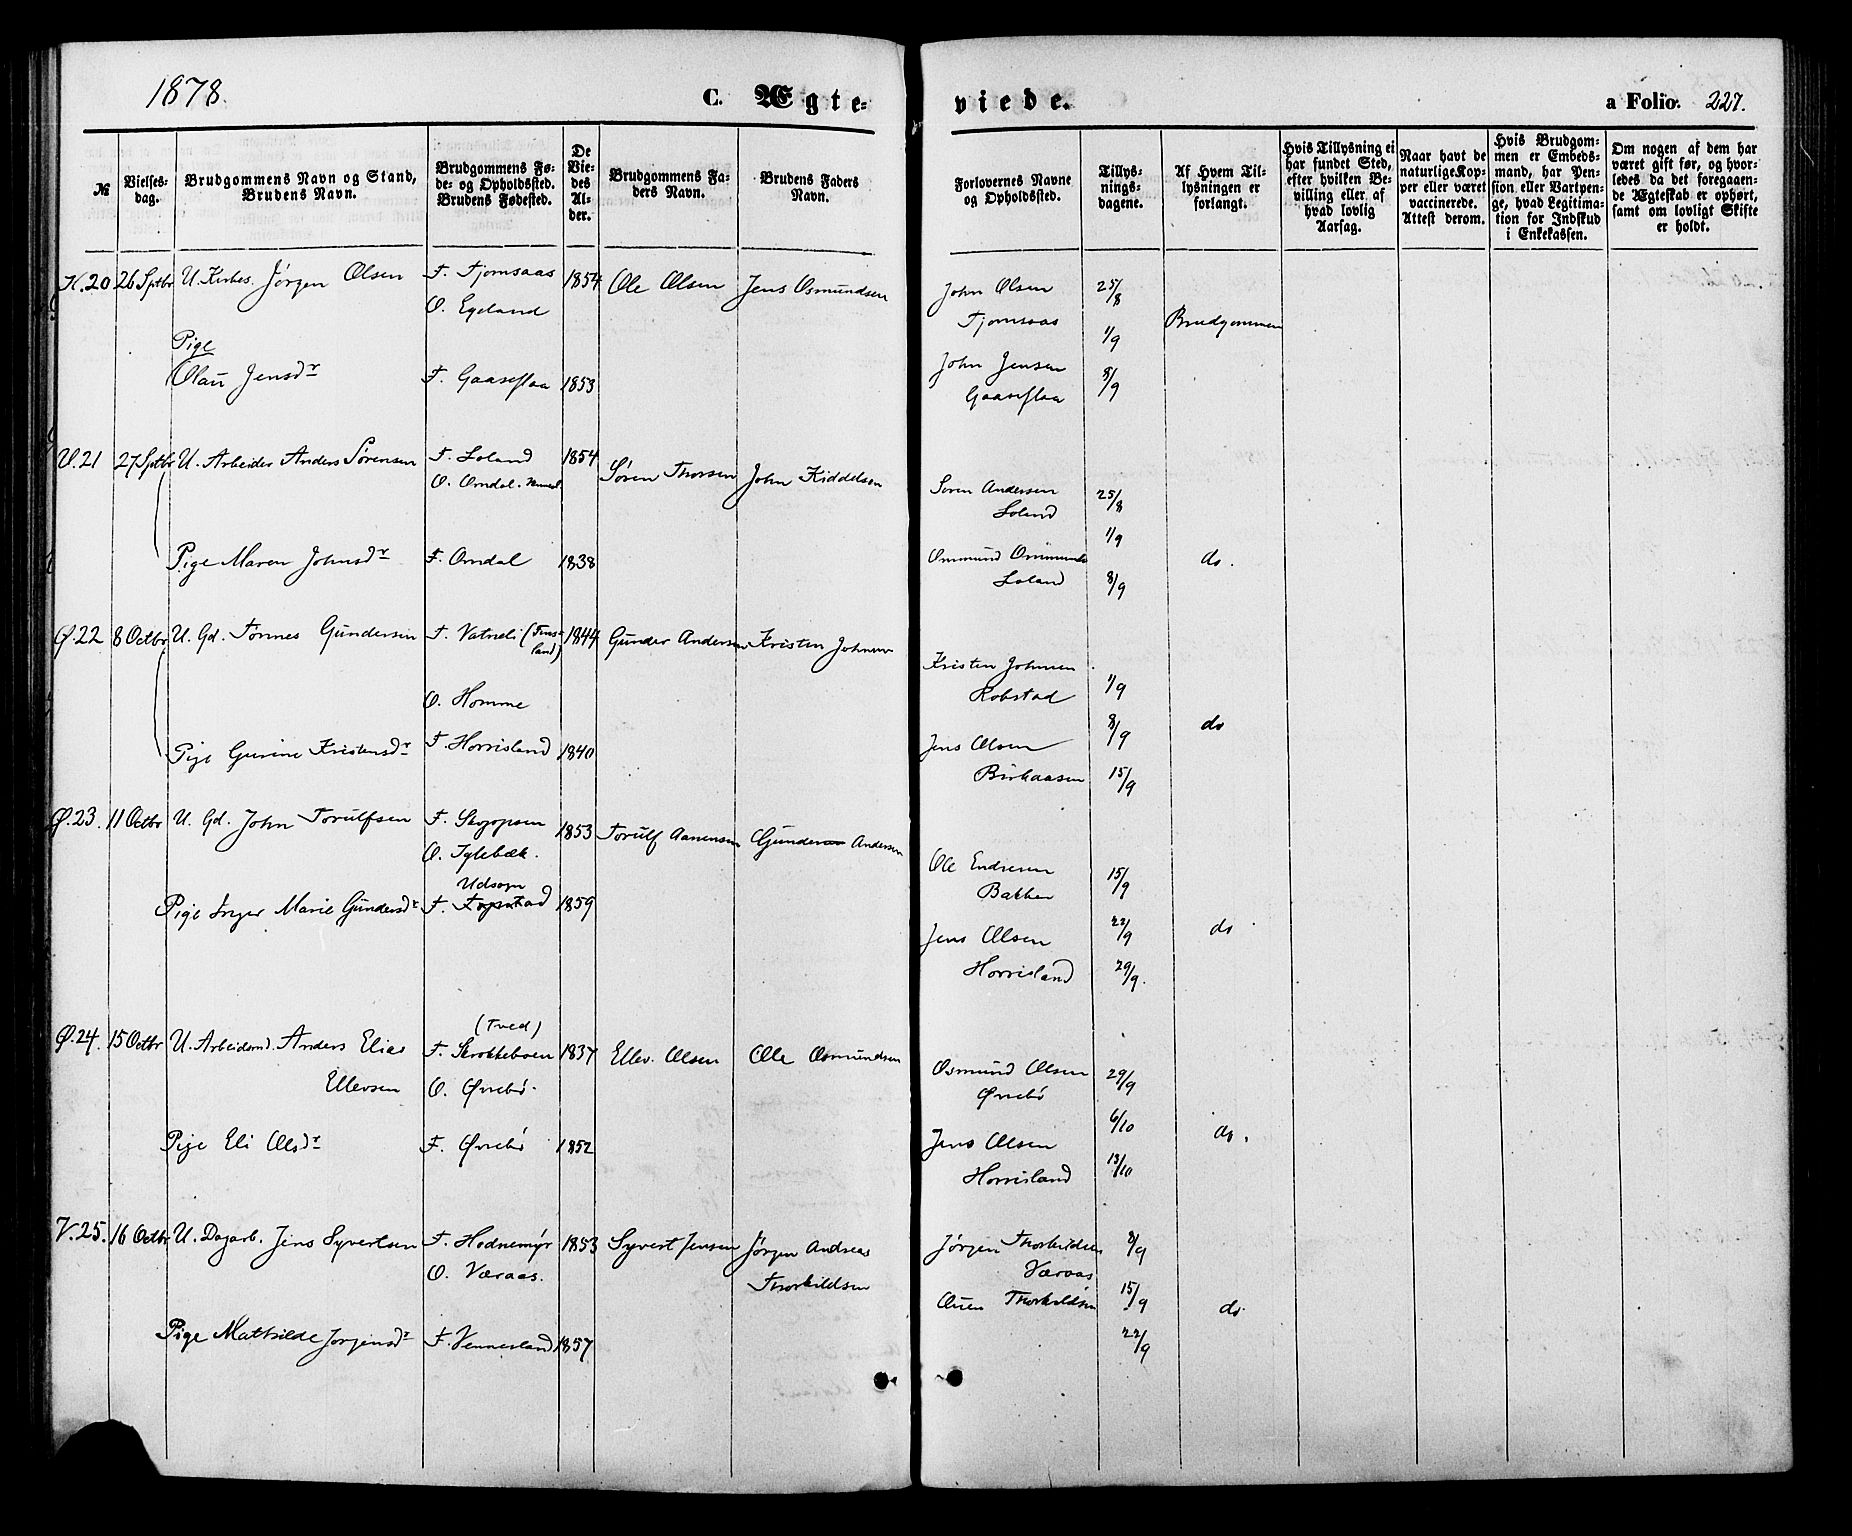 1878.
C. Ægte-
viede.
a Folio. 227.
№
Vielses-
dag.
Brudgommens Navn og Stand,
Brudens Navn.
Brudgommens Fø-
de- og Opholdssted.
Brudens Fødested.
De
Vie-
des
Al-
der.
Brudgommens Fa-
ders Navn.
Brudens Faders
Navn.
Forlovernes Navne
og Opholdssted.
Tillys-
nings-
dagene.
Af Hvem Til-
lysningen er
forlangt.
Hvis Tillysning ei
har fundet Sted,
efter hvilken Be-
villing eller af
hvad lovlig
Aarsag.
Naar havt de
naturlige Kop-
per eller været
vaccinerede.
Attest derom.
Hvis Brudgom-
men er Embeds-
mand, har Pen-
sion eller Vartpen-
ge, hvad Legitima-
tion for Indskud
i Enkekassen.
Om nogen af dem har
været gift før, og hvor-
ledes da det foregaaen-
de Ægteskab er ophørt,
samt om lovligt Skifte
er holdt.
20 26 Sptbr U. Jörgen Olsen F. Fjomsaas 1854 Ole Olsen Jens Osmundsen
O. Egeland
John Olsen 25/8
Tjomsaas 1/9 Brudgommen
Pige
Olau Jensdr F. Gaaseflaa 1853
John Jensen 8/9
Gaaseflaa
21 27 Sptbr U. Arbeider Anders Sörensen F. Loland 1854 Sören Thorsen John Kiddelsen
O. Omdal
Soren Andersen 25/8
Loland
1/9
Pige Maren Johnsdr F. Omdal 1838
Ommund do.
Loland 8/9
Ø.22 8 Octbr U. Gd. Tönnes Gundersen F. Vatneli (Fins-
land) 1844 Gunder Andersen Kristen Johnsen
O. Homme
Kristen Johnsen
Robstad 1/9
Pige Gurine Kristensdr F. Horrisland 1840
Jens Olsen 8/9 do
Birkaasen 15/9
Ø.23. 11 Octbr U. Gd. John Torulfsen F. 1853 Torulf Aanensen Gunder Andersen
O.
Udsogn
Pige Inger Marie Gundersdr F. 1859
Ole Endresen 15/9
Bakken
Jens Olsen 22/9 do
Horrisland 29/9.
Ø.24. 15 Octbr U. Arbeidsmd. Anders Elias
Ellevsen
(Tved)
F. Skrokkeboen 1837 Ellev. Olsen Ole Osmundsen
O. Øvrebö.
Pige Eli Olsdr F. Øvrebö 1852
Osmund Olsen 29/9
Øvrebö
6/10
Jens Olsen do.
Horrisland 13/10
V.25. 16 Octbr U. Dagarb. Jens Syvertsen F. Hodnemyr 1853 Syvert Jensen Jörgen Andreas
Thorkildsen
O. Væraas.
Pige Mathilde Jorgensdr F. Vennesland 1857
Jörgen Thorkildsen 8/9
Væraas
Thorkildsen 15/9 do
22/9